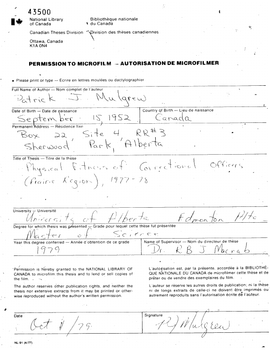 43500
National Library of Canada
Bibliothèque nationale du Canada
Canadian Theses Division
Division des thèses canadiennes
Ottawa, Canada
K1A 0N4
PERMISSION TO MICROFILM — AUTORISATION DE MICROFILMER
• Please print or type — Écrire en lettres moulées ou dactylographier
Full Name of Author — Nom complet de l'auteur
Patrick J Mulgrew
Date of Birth — Date de naissance
Country of Birth — Lieu de naissance
September 15, 1952
Canada
Permanent Address — Résidence fixe
Box 22, Site 4 RR#3
Sherwood Park, Alberta
Title of Thesis — Titre de la thèse
Physical Fitness of Correctional Officers
(Prairie Region), 1977-78
University — Université
University of Alberta Edmonton Alta.
Degree for which thesis was presented — Grade pour lequel cette thèse fut présentée
Master of Science
Year this degree conferred — Année d'obtention de ce grade
Name of Supervisor — Nom du directeur de thèse
1979
Dr R B J Macnab
Permission is hereby granted to the NATIONAL LIBRARY OF CANADA to microfilm this thesis and to lend or sell copies of the film.
L'autorisation est, par la présente, accordée à la BIBLIOTHÈQUE NATIONALE DU CANADA de microfilmer cette thèse et de prêter ou de vendre des exemplaires du film.
The author reserves other publication rights, and neither the thesis nor extensive extracts from it may be printed or otherwise reproduced without the author's written permission.
L'auteur se réserve les autres droits de publication; ni la thèse ni de longs extraits de celle-ci ne doivent être imprimés ou autrement reproduits sans l'autorisation écrite de l'auteur.
Date
Signature
Oct 8/79
PJ Mulgrew